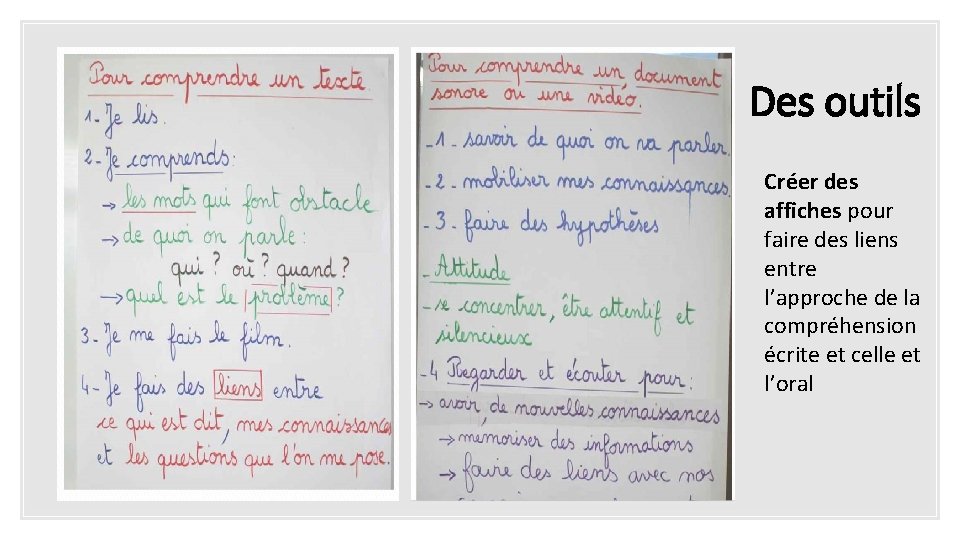 Pour comprendre un texte.
1- Je lis.
2- Je comprends:
→ les mots qui font obstacle
→ de quoi on parle:
qui? où? quand?
→ quel est le problème?
3- Je me fais le film.
4- Je fais des liens entre
ce qui est dit, mes connaissances
et les questions que l'on me pose.
Pour comprendre un document
sonore ou une vidéo.
-1- savoir de quoi on va parler.
-2- mobiliser mes connaissances.
-3- faire des hypothèses
- Attitude
- se concentrer, être attentif et
silencieux
-4 Regarder et écouter pour:
→ avoir de nouvelles connaissances
→ memoriser des informations
→ faire des liens avec nos
Des outils
Créer des
affiches pour
faire des liens
entre
l'approche de la
compréhension
écrite et celle et
l'oral